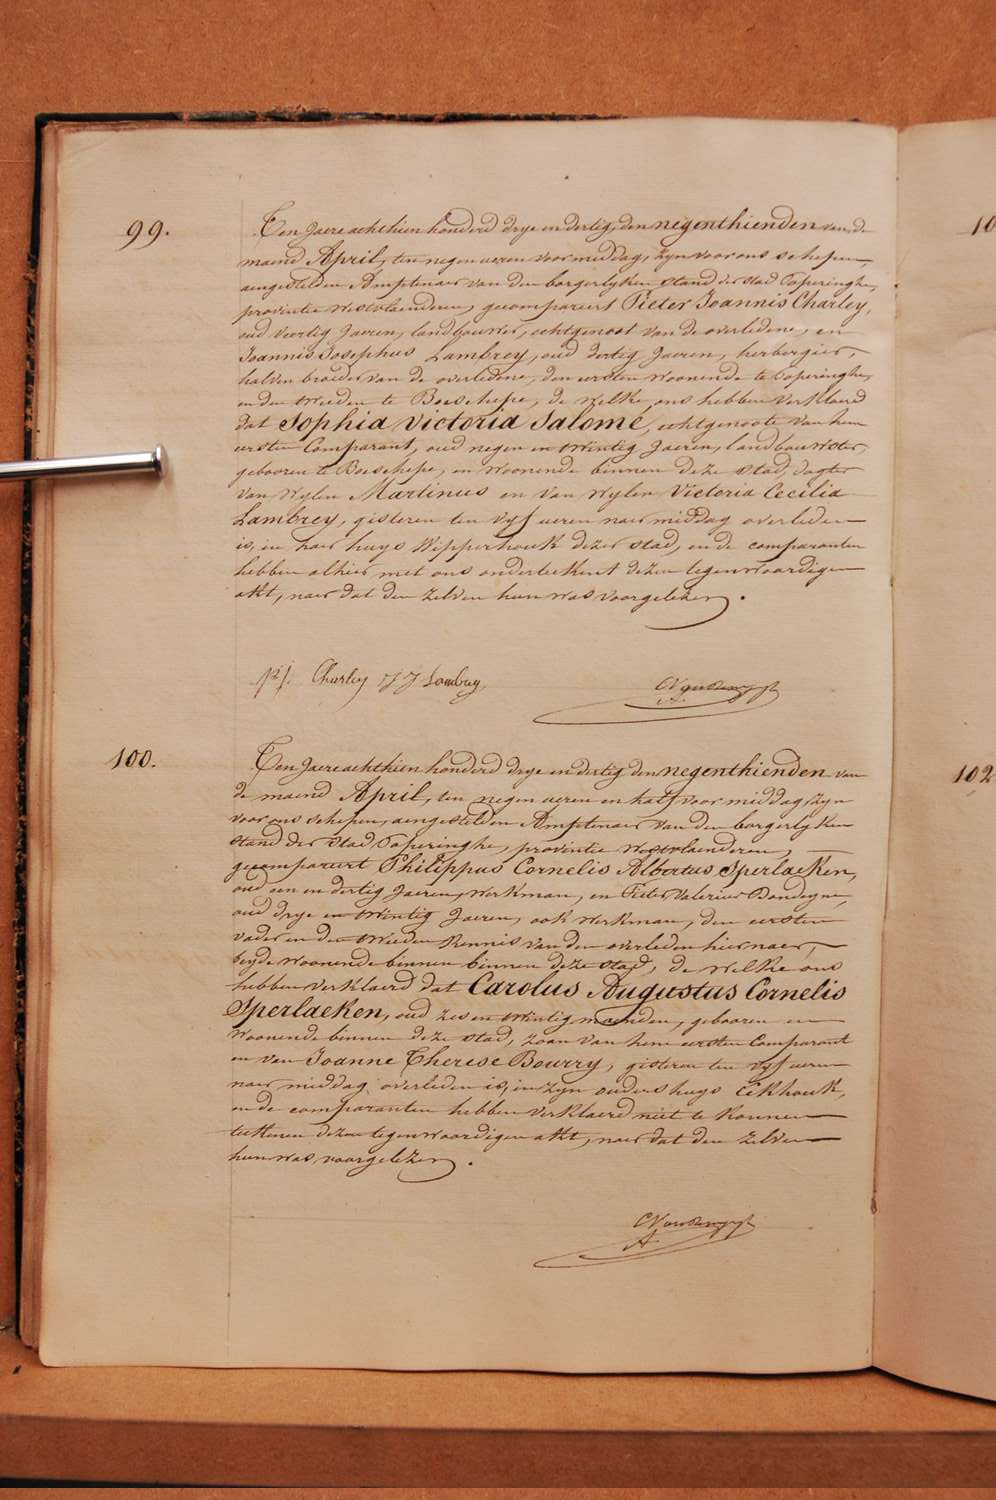 99.
Ten Jaere achthien honderd drye en dertig, den negenthienden van de
maend April, ten negen ueren voormiddag, zyn voor ons schepen
aengestelden Amptenaer van den borgerlyken stand der stad Poperinghe,
provintie Westvlaenderen, gecompareert Pieter Joannis Charley,
oud veertig Jaeren, landbouwer, echtgenoot van de overledene, en
Joannis Josephus Lambrey, oud dertig Jaeren, herbergier,
halven broeder van de overledene, den eersten woonende te Poperinghe,
en den tweeden te Boeschepe, de welke ons hebben verklaerd
dat Sophia Victoria Salomé, echtgenoote van hem
eersten Comparant, oud negen en twintig Jaeren, landbouwster,
gebooren te Boeschepe, en woonende binnen deze stad, dogter
van wylen Martinus en van wylen Victoria Cecilia
Lambrey, gisteren ten vyf ueren naer middag overleden
is, in haer huys Wipperhoek dezer stad, en de comparanten
hebben alhier met ons onderteekent dezen tegenwoordigen
akt, naer dat den zelven hun was voorgelezen.
p: j. Charley J J Lambrey
100.
Ten Jaere achthien honderd drye en dertig den negenthienden van
de maend April, ten negen ueren en half voor middag, zyn
voor ons schepen, aengestelden Amptenaer van den borgerlyken
stand der stad Poperinghe, provintie Westvlaenderen,
gecompareert Philippus Cornelis Albertus Sperlaeken,
oud een en dertig Jaeren, werkman, en Pieter Valerius Dondeyne,
oud drye en twintig Jaeren, ook werkman, den eersten
vader en den tweeden kennis van den overleden hiernaer,
beyde woonende binnen binnen deze stad, de welke ons
hebben verklaerd dat Carolus Augustus Cornelis
Sperlaeken, oud zes en twintig maenden, gebooren en
woonende binnen deze stad, zoon van hem eersten Comparant
en van Joanne Therese Bourry, gisteren ten vyf ueren
naer middag overleden is, in zyn ouders huys Eekhoek,
en de comparanten hebben verklaerd niet te konnen
teekenen dezen tegenwoordigen akt, naer dat den zelven
hun was voorgelezen.
10
102